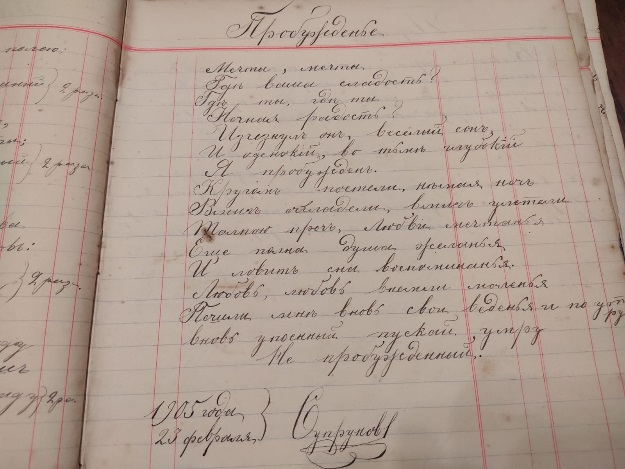 Пробужденье.
полею:
2 раза
Мечты, мечты.
Гдѣ ваша сладость?
Гдѣ ты, гдѣ ты
Ночная радость?
Изчезнулъ онъ, веселый сонъ,
И одинокій, во тьмѣ глубокій
Я пробужденъ.
2 раза
Кругомъ постели, нѣмая ночь
Вмигъ охладели, вмигъ улетели
Толпою прочь, Любви мечтанья
Еще полна душа желанья
И ловитъ сна воспоминанья.
2 раза.
Любовь, любовь внемли моленья
Пошли мнѣ вновь свои веденья и по утру
вновь упоенный пускай умру
Не пробужденный.
1905 года
23 февраля.
Супрунов